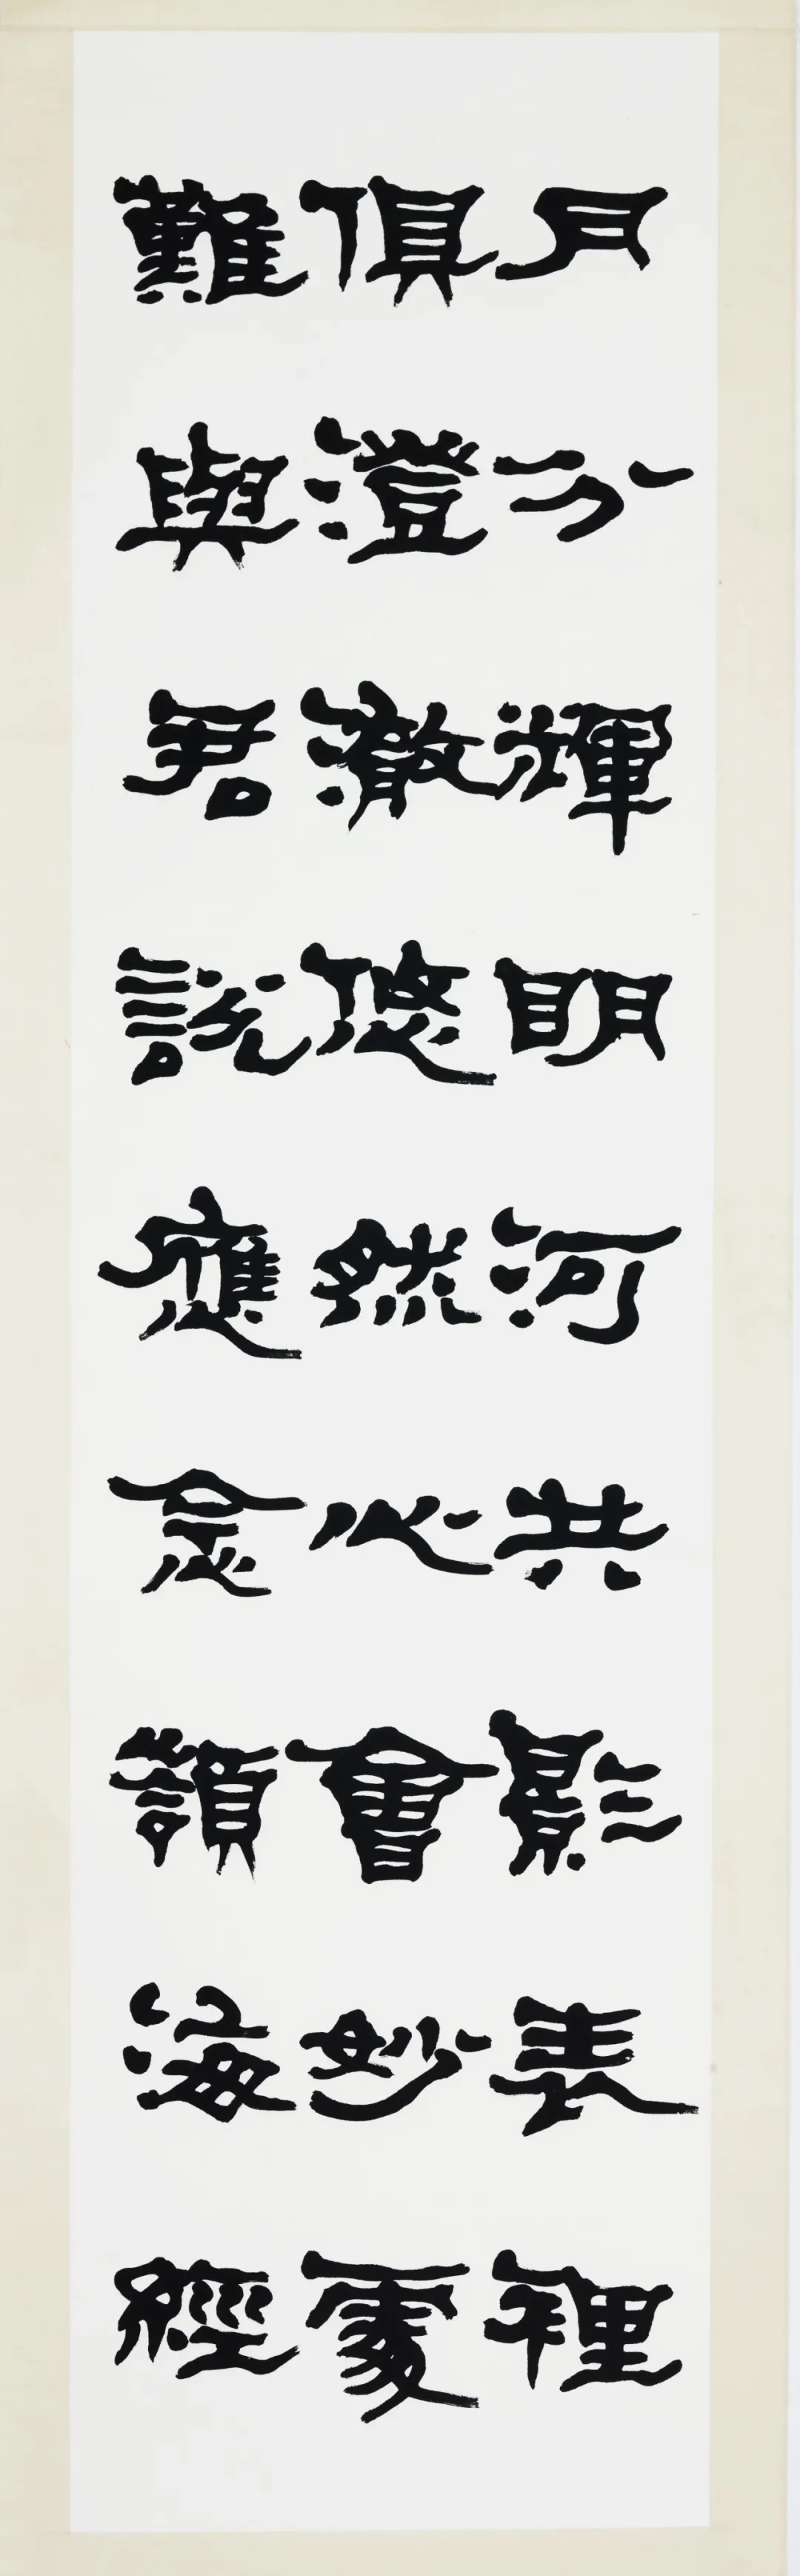 月分輝明河共影表裡
俱澄澈悠然心會妙處
難與君說應念嶺海經